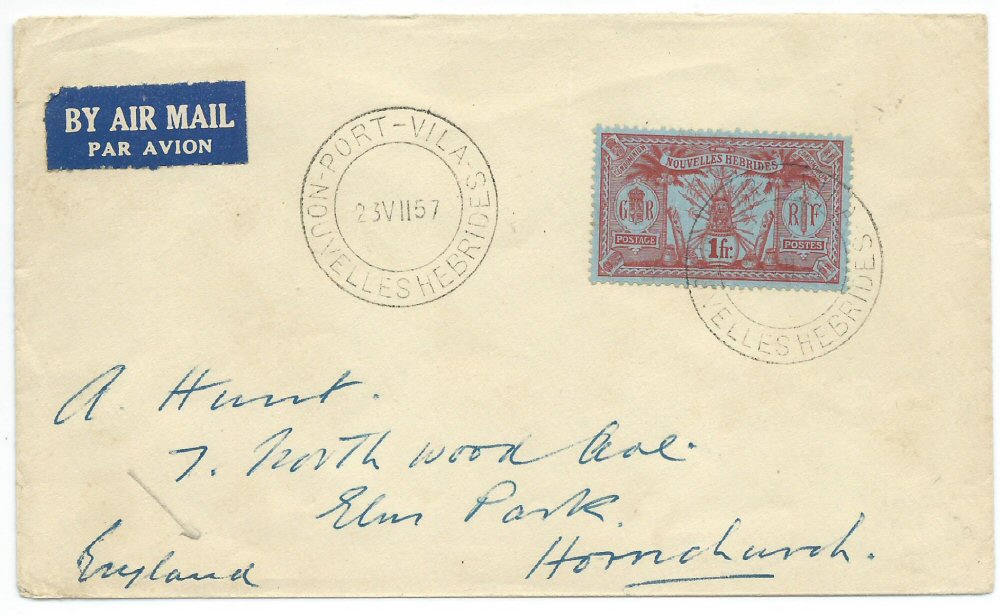 BY AIR MAIL
PAR AVION
PORT-VILA-
NOUVELLES HEBRIDES
23VII57
NOUVELLES HEBRIDES
G R
R F
POSTAGE
1fr.
POSTES
VELLES HEBRIDES
A. Hunt.
7. North wood Ave.
Elm Park.
Hornchurch.
England